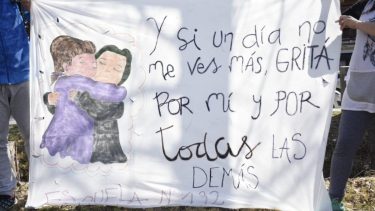 Y SI UN DÍA NO
ME VES MÁS, GRITÁ
POR MÍ Y POR
todas LAS
DEMÁS
ESCUELA N 192